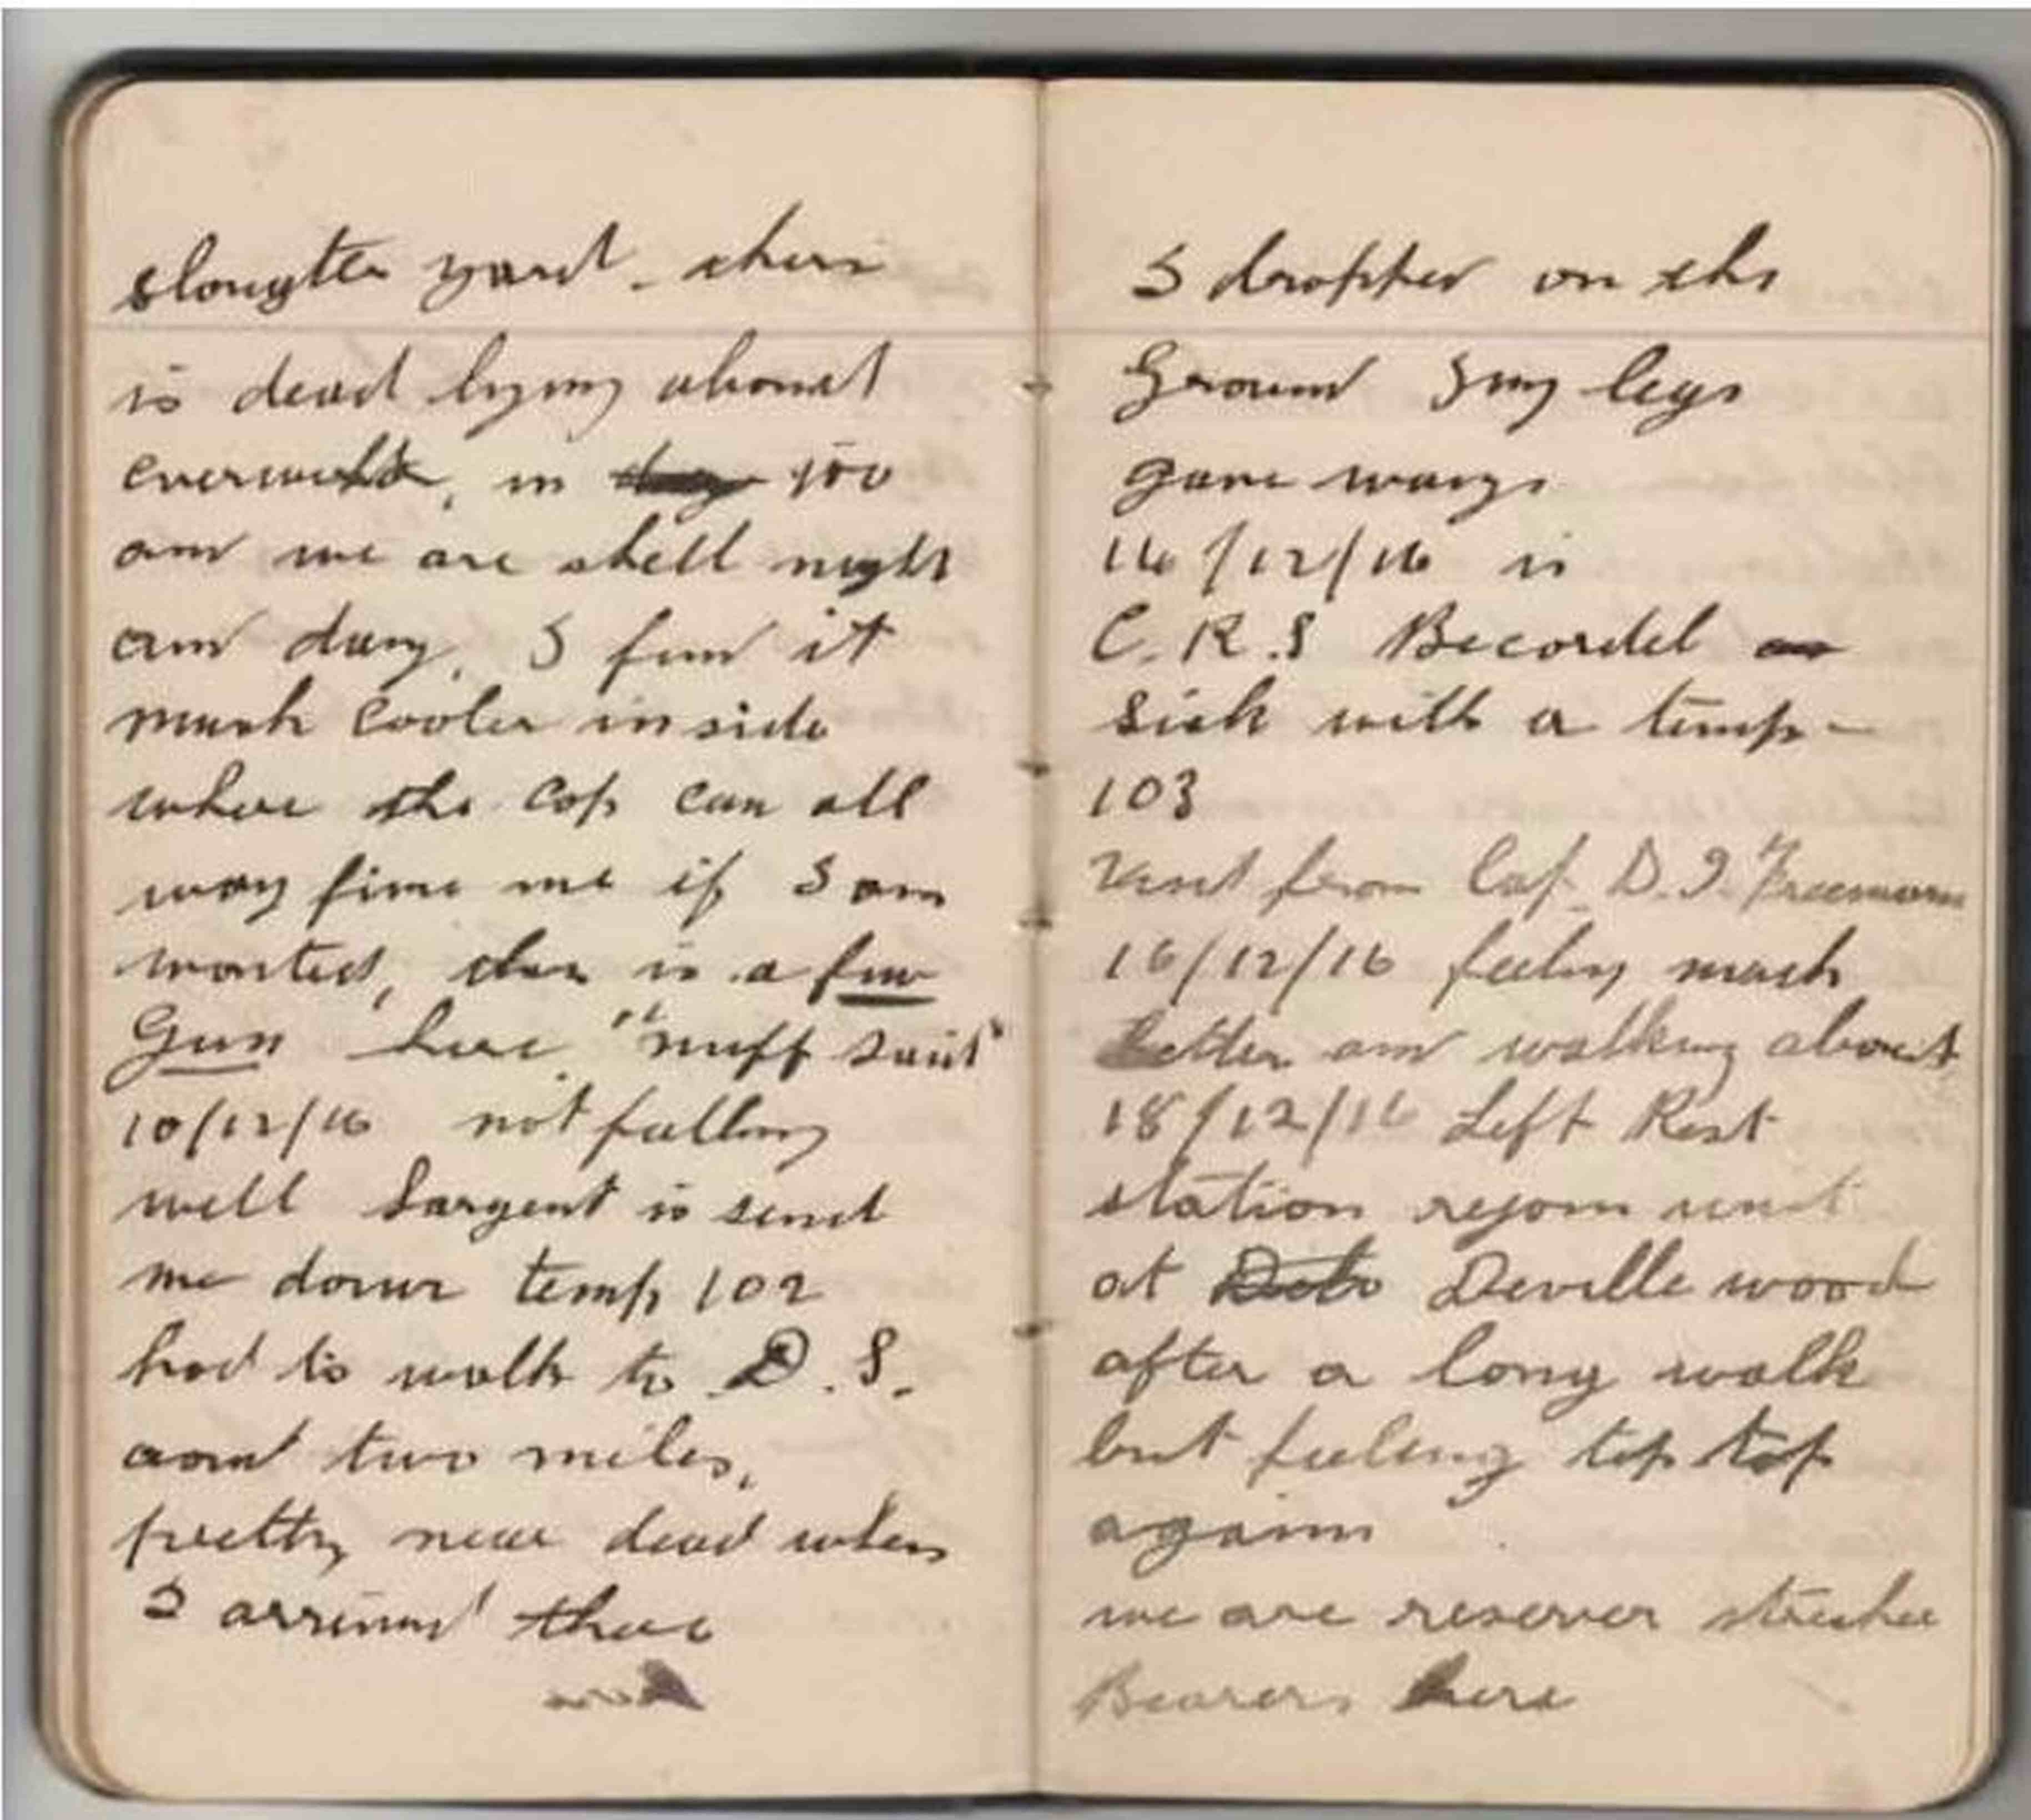 slougter yard. ther
is dead lying about
everwere, in 100
and we are shell night
and day, I find it
much cooler inside
where the cop can all
way fine me if I am
wonted, ther is a few
Gun here, "nuff said"
10/12/16 not falling
well Sargent is send
me down temp 102
had to walk to D.S.
aout two miles,
pretty near dead when
I arrived there
I dropped on the
Ground I my legs
gave way.
14/12/16 is
C.R.S Becordel
Sick with a temp-
103
Visit from Cap. D.I. Freeman
16/12/16 feeling much
better and walking about
18/12/16 Left Rest
station rejoin unit
at Deville wood
after a long walk
but feeling top top
again
we are reserver strecher
Bearers here